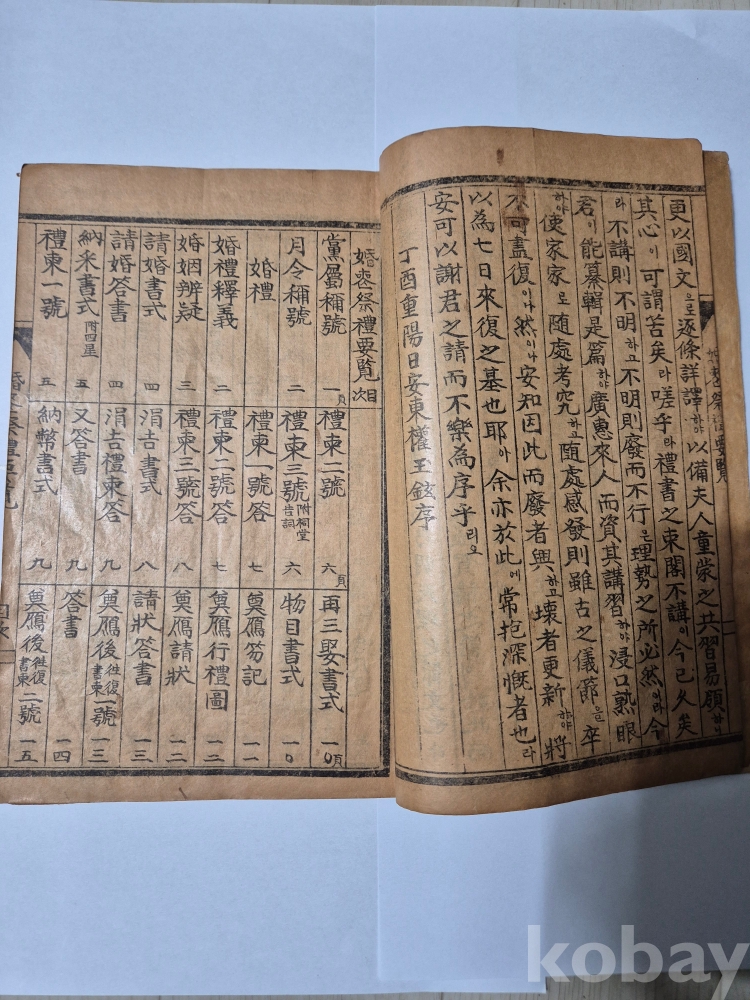 更以國文으로逐條詳譯하야以備夫人童蒙之共習易顧하니
其心이可謂苦矣라嗟乎라禮書之束閣不講이今已久矣
라不講則不明하고不明則廢而不行은理勢之所必然이라今
君이能纂輯是篇하야廣惠來人而資其講習하야浸口熟眼
하야使家家로隨處考究하고隨處感發則雖古之儀節을卒
不可盡復이나然이나安知因此而廢者興하고壞者更新하야將
以為七日來復之基也耶아余亦於此에常抱深慨者也라
安可以謝君之請而不樂為序乎리오
丁酉重陽日安東權玉鉉序
婚喪祭禮要覽目次
黨屬稱號 一頁
月令稱號 二
婚禮
婚禮釋義 二
婚姻辨疑 三
請婚書式 四
請婚答書 四
納采書式 附四星 五
禮柬一號 五
禮柬二號 六頁
禮柬三號 附祠堂告詞 六
禮柬一號答 七
禮柬二號答 七
禮柬三號答 八
涓吉書式 八
涓吉禮柬答 九
又答書 九
納幣書式 九
再三娶書式 一〇頁
物目書式 一〇
奠鴈笏記 一一
奠鴈行禮圖 一二
奠鴈請狀 一二
請狀答書 一三
奠鴈後往復書柬一號 一三
答書 一四
奠鴈後往復書柬二號 一五
kobay